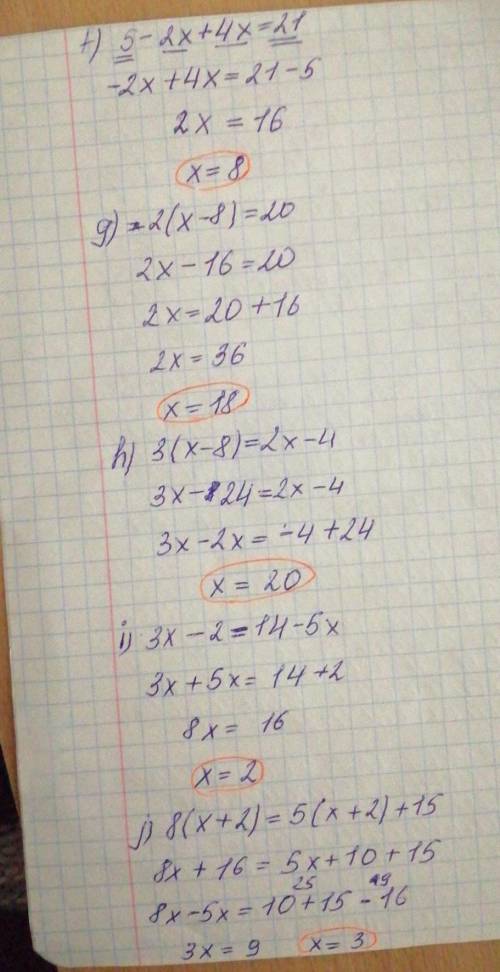 f) 5 - 2x + 4x = 21
-2x + 4x = 21 - 5
2x = 16
x = 8
g) 2(x - 8) = 20
2x - 16 = 20
2x = 20 + 16
2x = 36
x = 18
h) 3(x - 8) = 2x - 4
3x - 24 = 2x - 4
3x - 2x = -4 + 24
x = 20
i) 3x - 2 = 14 - 5x
3x + 5x = 14 + 2
8x = 16
x = 2
j) 8(x + 2) = 5(x + 2) + 15
8x + 16 = 5x + 10 + 15
25
8x - 5x = 10 + 15 - 16
3x = 9 x = 3